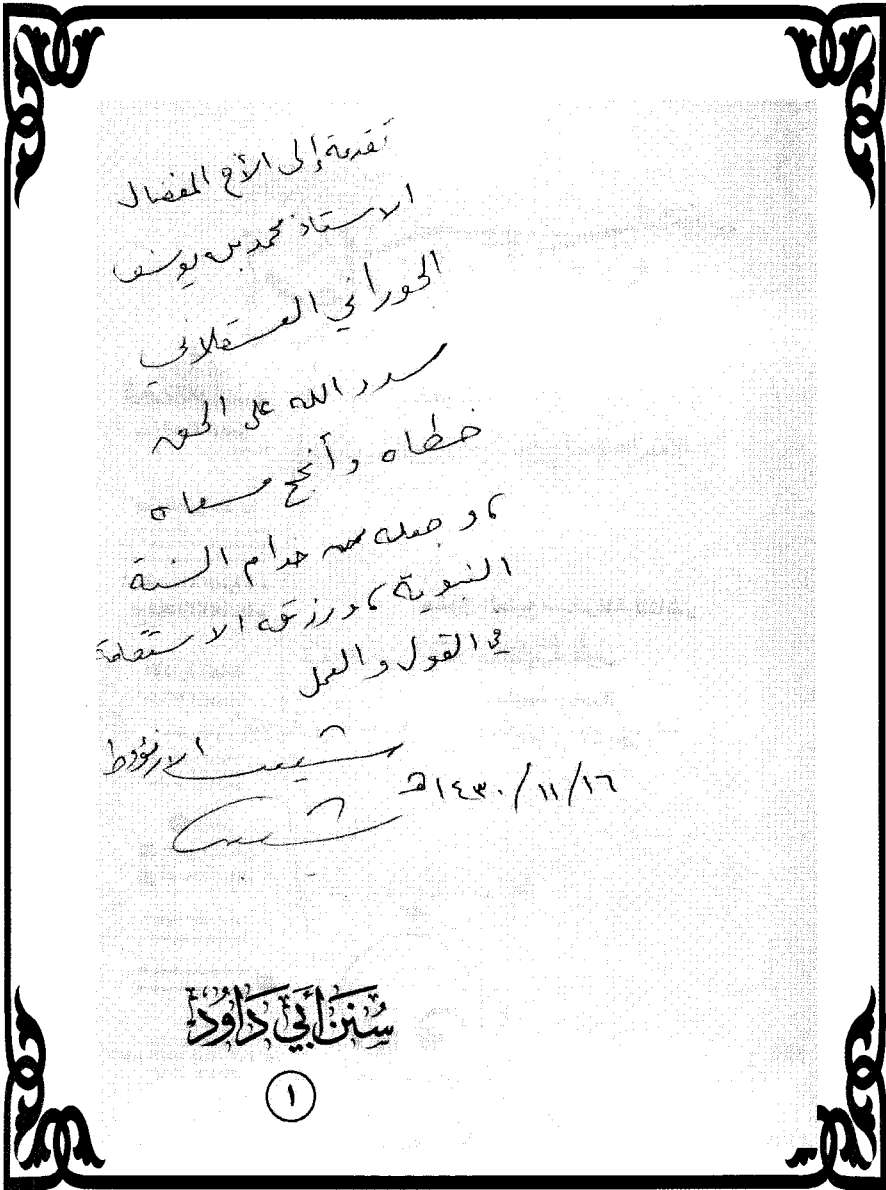 تقدمة إلى الأخ المفضال
الاستاذ محمد بن يوسف
الحوراني العسقلاني
سدد الله على الحق
خطاه وأنجح مسعاه
، وجعله من خدام السنة
النبوية ، ورزقه الاستقامة
في القول والعمل
شعيب الارنؤوط
١٤٣٠/١١/١٦هـ
شعيب
سُنَن أَبِي دَاوُدَ
١